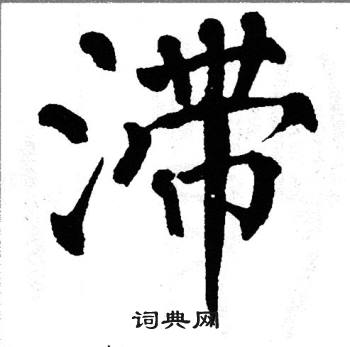 滞
词典网